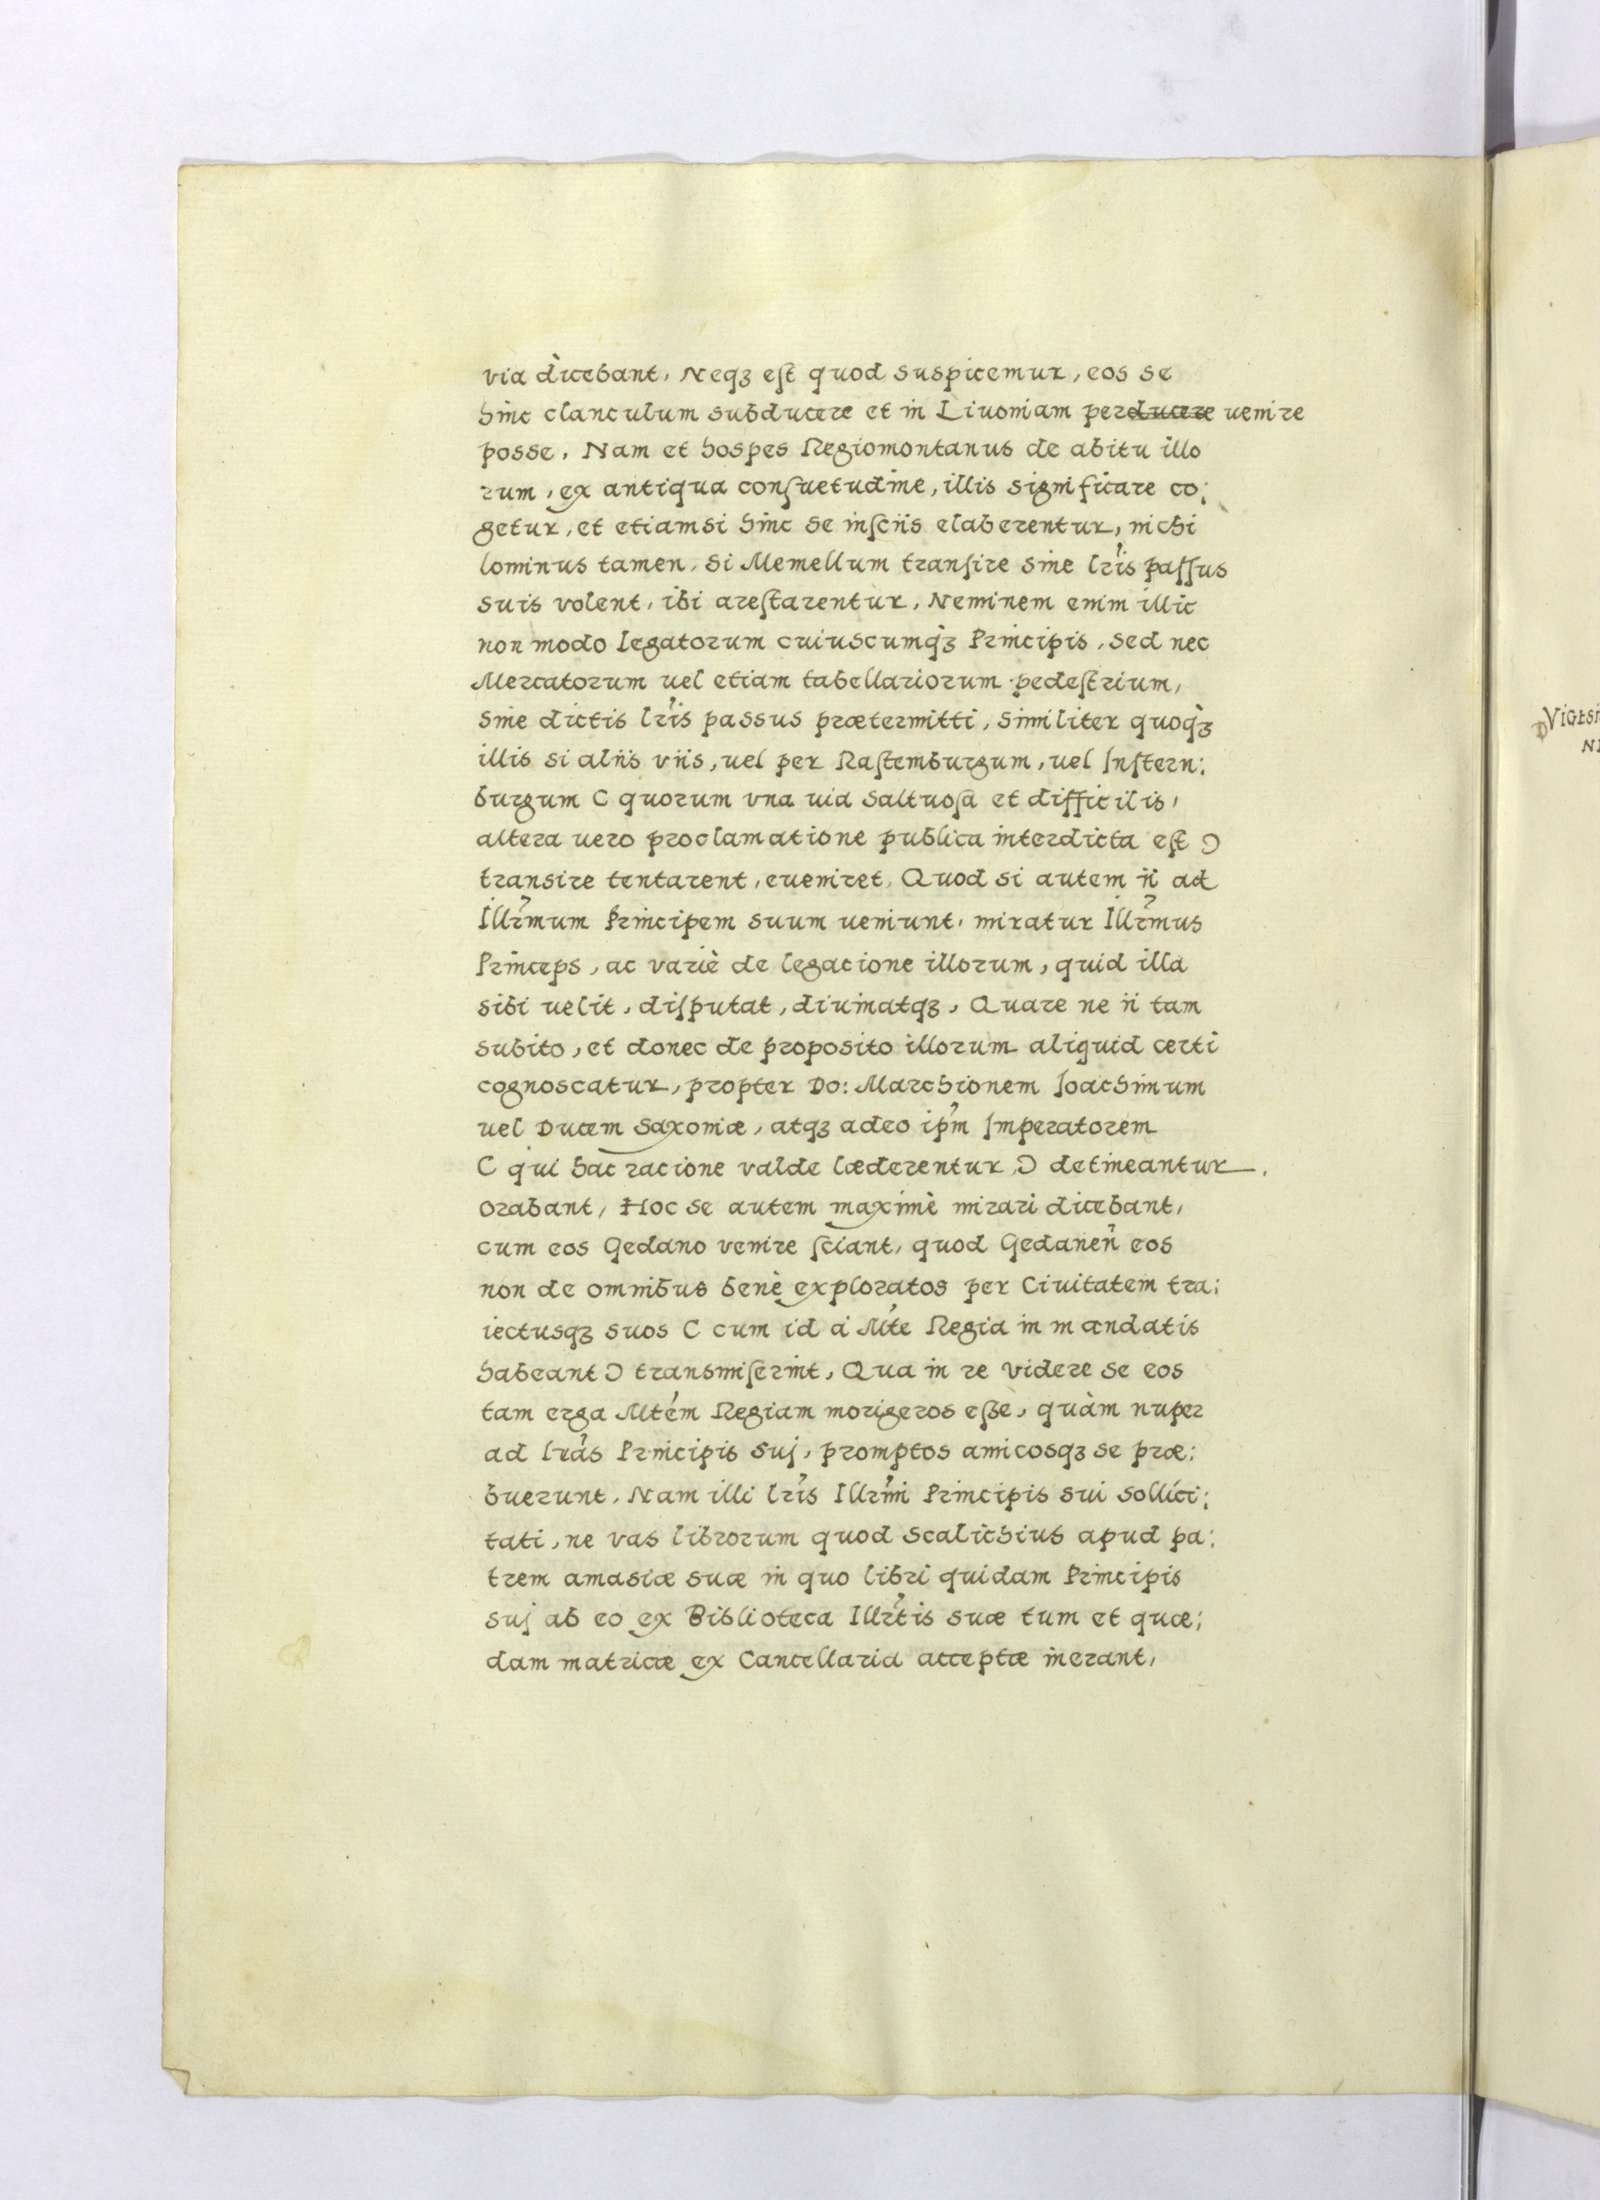 via dicebant, Neqꝫ eſt quod suspicemur, eos se
hinc clanculum subducere et in Livoniam perducere uenire
posse, Nam et hospes Regiomontanus de abitu illo
rum, ex antiqua conſuetudine, illis significare co:
getur, et etiamsi hinc se inſciis elaberentur, nichi
lominus tamen, si Memellum tranſire sine lr̃is paſſus
suis volent, ibi areſtarentur, Neminem enim illic
non modo legatorum cuiuscumqꝫ Principis, sed nec
Mercatorum uel etiam tabellariorum pedeſtrium,
sine dictis lr̃is passus prætermitti, similiter quoqꝫ
illis si aliis viis, uel per Raſtemburgum, uel Inſtern:
burgum C quorum vna uia saltuoſa et difficilis,
altera uero proclamatione publica interdicta eſt Ɔ
transire tentarent, eueniret, Quod si autem ii ad
Illr̃mum Principem suum ueniunt, miratur Illr̃mus
Princeps, ac variè de legacione illorum, quid illa
sibi uelit, diſputat, diuinatqꝫ, Quare ne ii tam
subito, et donec de proposito illorum aliquid certi
cognoscatur, propter Do: Marchionem Joachimum
uel Ducem Saxoniæ, atqꝫ adeo ip̃m Imperatorem
C qui hac racione valde læderentur Ɔ detineantur.
orabant, Hoc se autem maximè mirari dicebant,
cum eos Gedano venire ſciant, quod Gedanen̄ eos
non de omnibus benè exploratos per Ciuitatem tra:
iectusqꝫ suos C cum id á Mt́e Regia in mandatis
habeant Ɔ transmiſerint, Qua in re videre se eos
tam erga Mt́em Regiam morigeros eſse, quàm nuper
ad lrãs Principis suj, promptos amicosqꝫ se præ:
buerunt, Nam illi lr̃is Illr̃mi Principis sui sollici:
tati, ne vas librorum quod Scalichius apud pa:
trem amasiæ suæ in quo libri quidam Principis
suj ab eo ex Biblioteca Illr̃tis suæ tum et quæ:
dam matricæ ex Cancellaria acceptæ inerant,